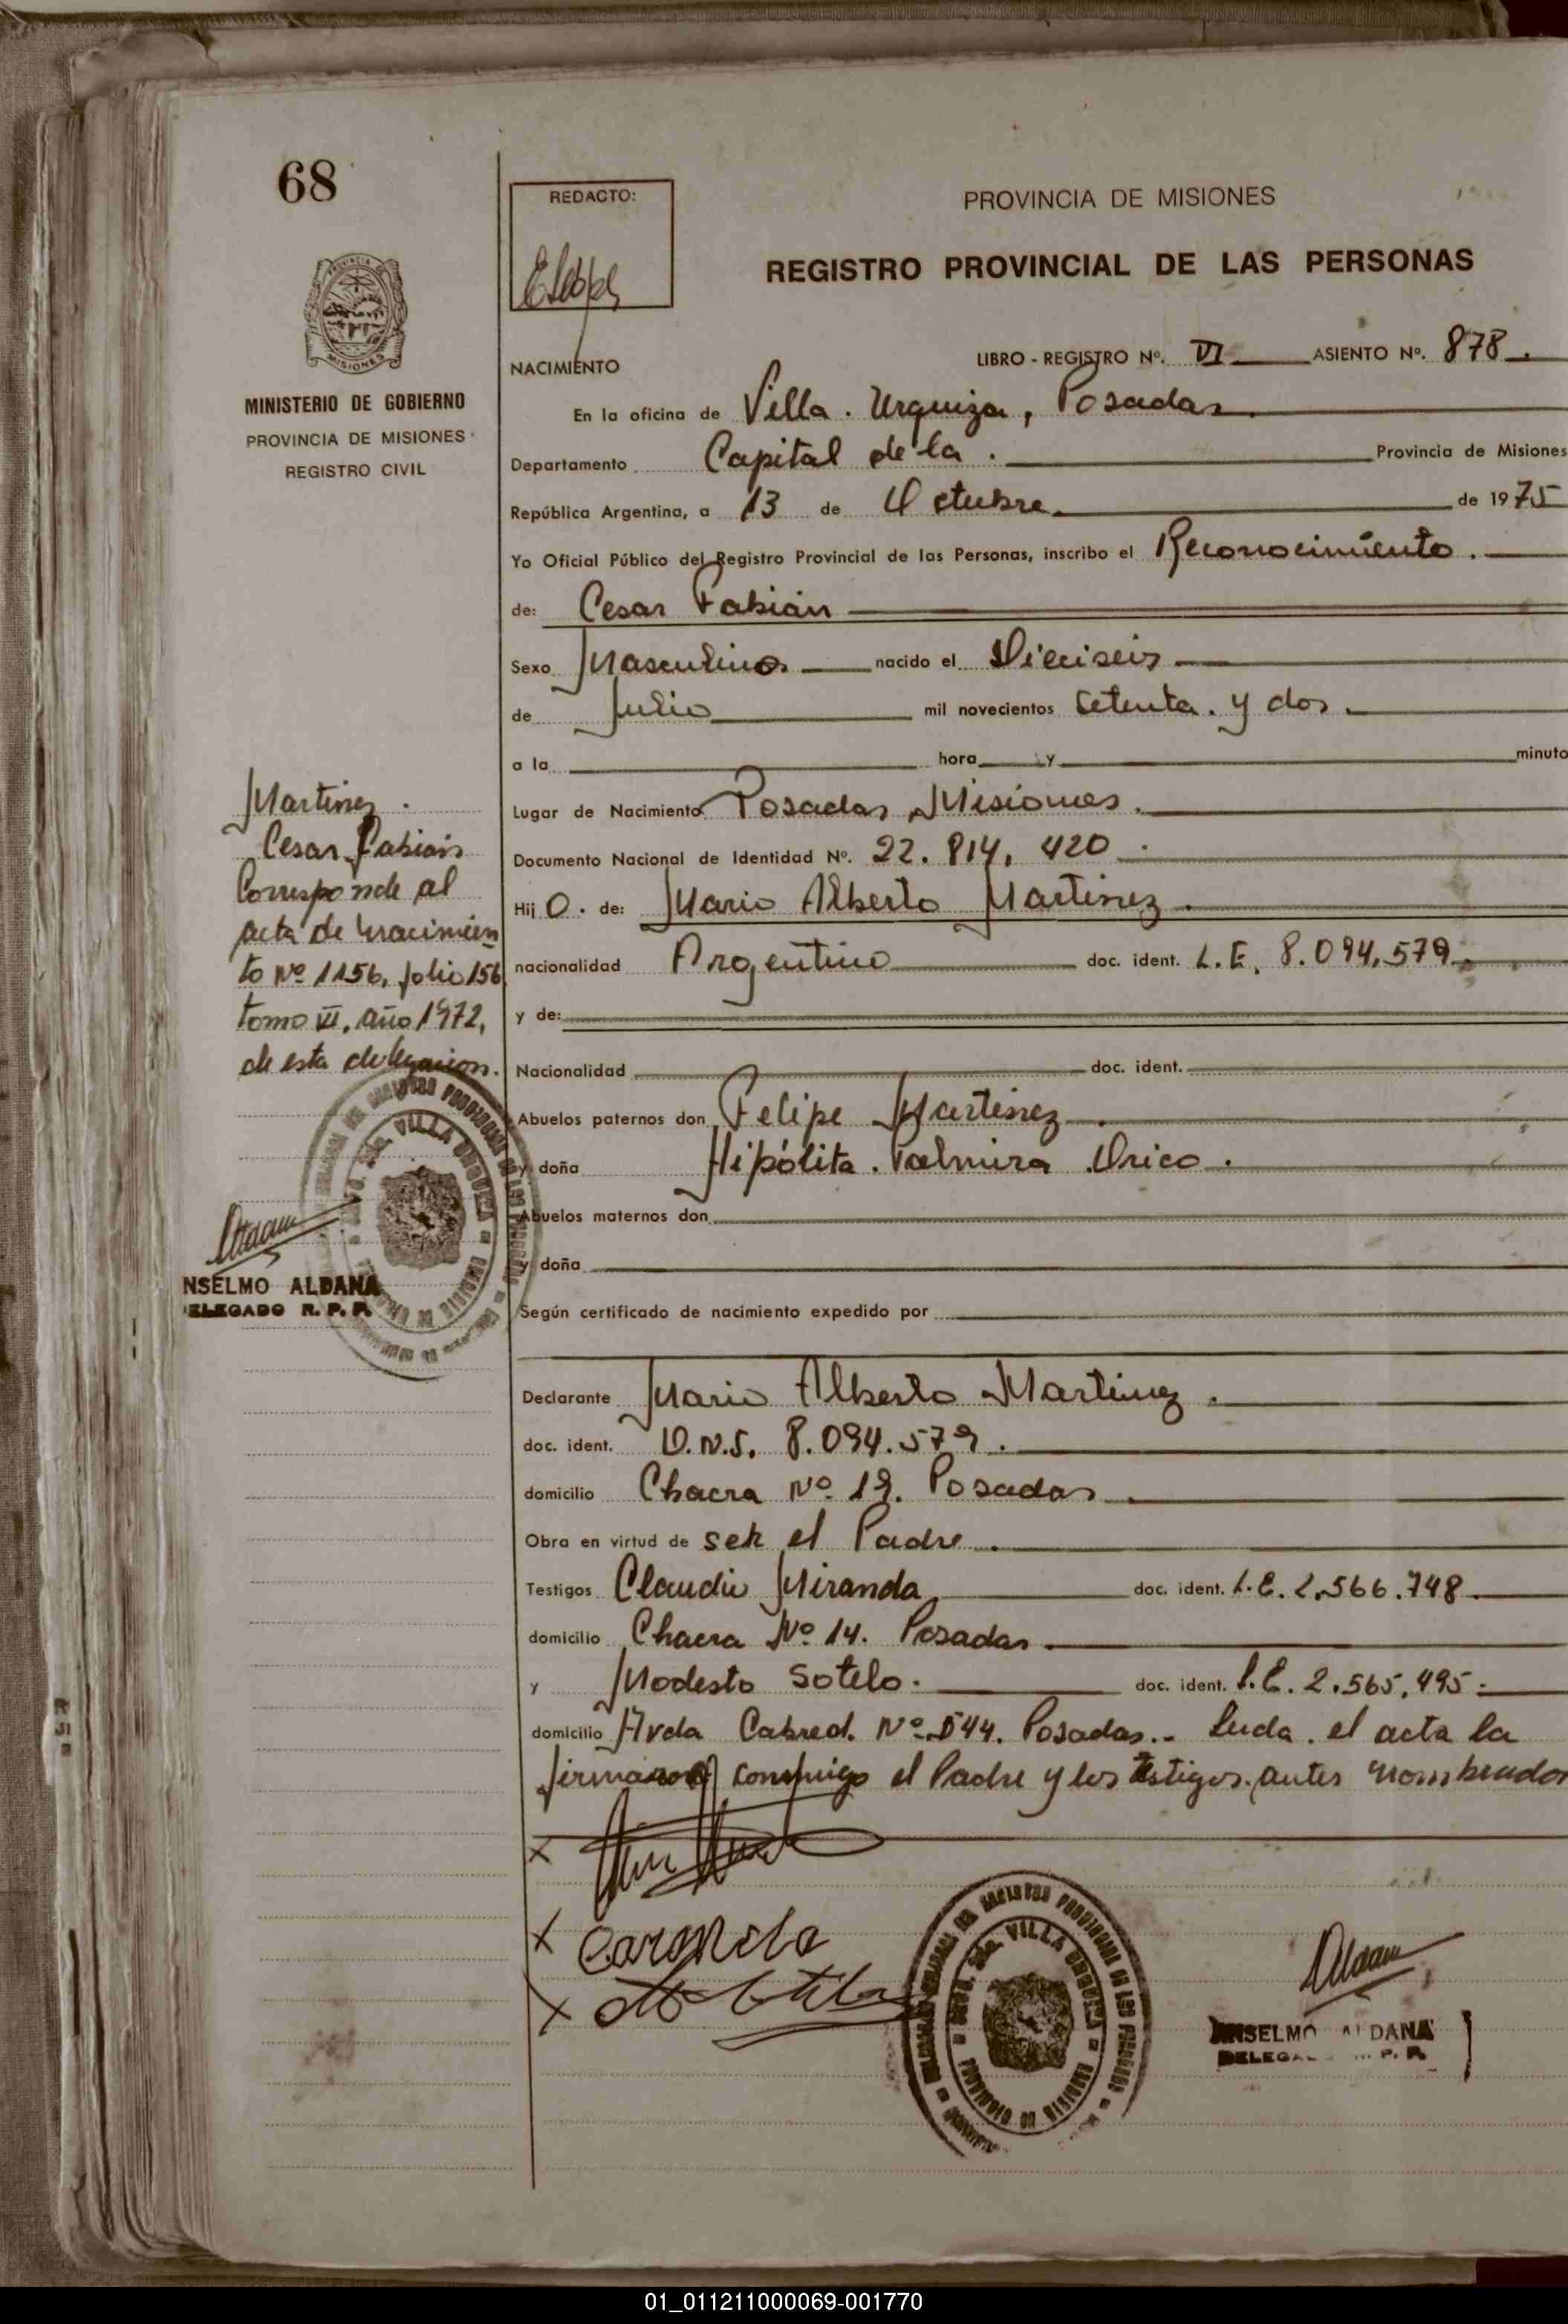 68
REDACTO:
PROVINCIA DE MISIONES
REGISTRO PROVINCIAL DE LAS PERSONAS
NACIMIENTO
LIBRO - REGISTRO Nº. VI ASIENTO Nº. 878.
MINISTERIO DE GOBIERNO
PROVINCIA DE MISIONES
REGISTRO CIVIL
En la oficina de Villa. Urquiza, Posadas
Departamento Capital de la. Provincia de Misiones
República Argentina, a 13 de Octubre de 1975
Yo Oficial Público del Registro Provincial de las Personas, inscribo el Reconocimiento.
de: Cesar Fabián
Sexo Masculino nacido el Dieciseis
de Julio mil novecientos setenta. y dos.
a la hora y minuto
Lugar de Nacimiento Posadas Misiones.
Documento Nacional de Identidad Nº. 22.814.420
Hij o. de: Mario Alberto Martinez.
nacionalidad Argentino doc. ident. L.E. 8.094.579
y de:
Nacionalidad doc. ident.
Abuelos paternos don Felipe Martinez
y doña Hipólita. Palmira
Abuelos maternos don
y doña
Según certificado de nacimiento expedido por
Martinez.
Cesar Fabián
Corresponde al
acta de Nacimien
to Nº 1156, folio 156
tomo VI, año 1972,
de esta delegacion.
VILLA URQUIZA
NSELMO ALDANA
DELEGADO R. P. P.
Declarante Mario Alberto Martinez.
doc. ident. D.N.I. 8.094.579.
domicilio Chacra Nº 19. Posadas
Obra en virtud de ser el Padre.
Testigos Claudio Miranda doc. ident. L.E. 2.566.748
domicilio Chacra Nº 14. Posadas
y Modesto Sotelo. doc. ident. L.E. 2.565.495
domicilio Avda Cabred. Nº 544. Posadas.- Leida. el acta la
firman conmigo el Padre y los testigos. antes nombrados
x
x
x
VILLA URQUIZA
ANSELMO ALDANA
DELEGADO R. P. P.
01_011211000069-001770